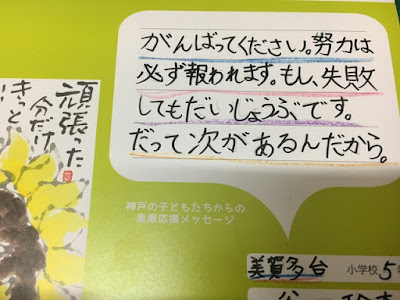 がんばってください。努力は
必ず報われます。もし、失敗
してもだいじょうぶです。
だって次があるんだから。
頑張った
分だけ
きっと
神戸の子どもたちからの
直筆応援メッセージ
美賀多台 小学校 5年